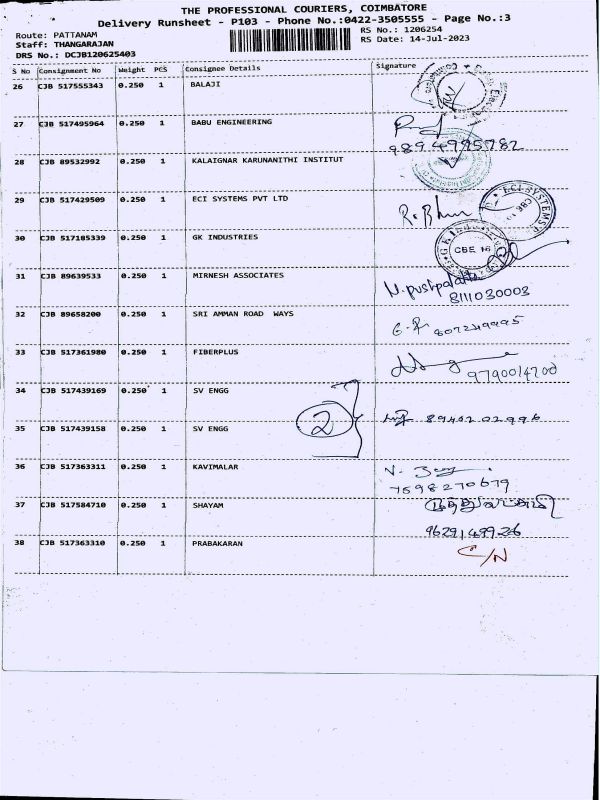 THE PROFESSIONAL COURIERS, COIMBATORE
Delivery Runsheet - P103 - Phone No.:0422-3505555 - Page No.:3
Route: PATTANAM
RS No.: 1206254
Staff: THANGARAJAN
RS Date: 14-Jul-2023
DRS No.: DCJB120625403
S No Consignment No Weight PCS Consignee Details Signature
26 CJB 517555343 0.250 1 BALAJI
27 CJB 517495964 0.250 1 BABU ENGINEERING
28 CJB 89532992 0.250 1 KALAIGNAR KARUNANITHI INSTITUT
29 CJB 517429509 0.250 1 ECI SYSTEMS PVT LTD
ECI SYSTEMS
30 CJB 517185339 0.250 1 GK INDUSTRIES
CBE 16
31 CJB 89639533 0.250 1 MIRNESH ASSOCIATES
8111030003
32 CJB 89658200 0.250 1 SRI AMMAN ROAD WAYS
33 CJB 517361980 0.250 1 FIBERPLUS
34 CJB 517439169 0.250 1 SV ENGG
2
35 CJB 517439158 0.250 1 SV ENGG
36 CJB 517363311 0.250 1 KAVIMALAR
7598270679
37 CJB 517584710 0.250 1 SHAYAM
38 CJB 517363310 0.250 1 PRABAKARAN
C/N